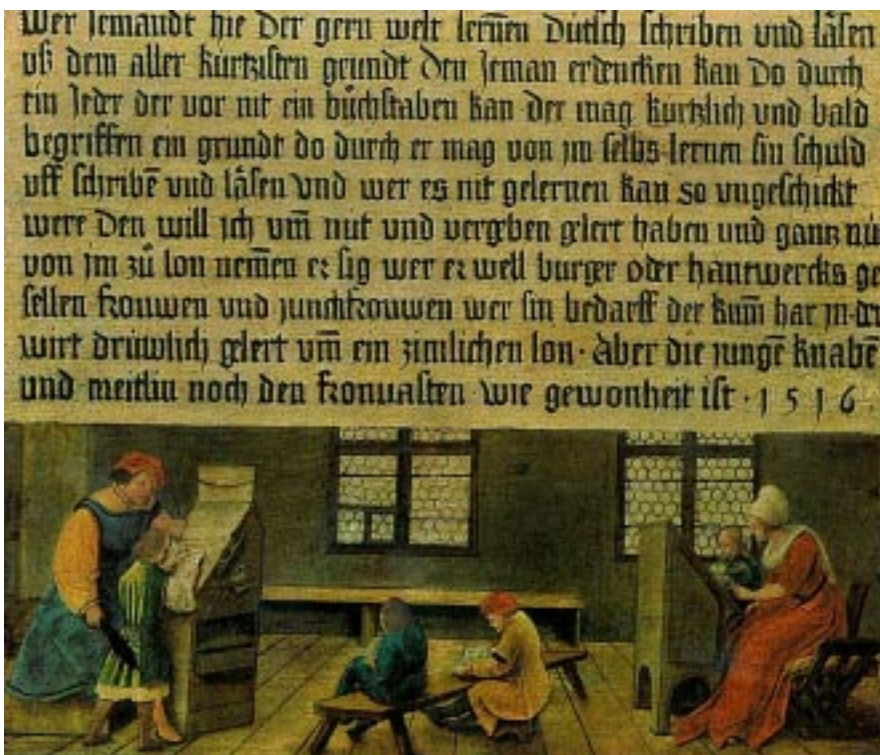 Wer jemandt hie der gern welt lernen̄ Dütsch schriben und läsen
uß dem aller kürtzisten grundt Den jeman erdencken kan Do durch
ein jeder der vor nit ein bůchstaben kan der mag kürtzlich und bald
begriffen ein grundt do durch er mag von jm selbs lernen sin schuld
uff schribē und läsen Und wer es nit gelernen kan so ungeschickt
were Den will ich um̄ nüt und vergeben gelert haben und gantz nü
von jm zů lon nem̄en er sig wer er well burger oder hantwercks ge
sellen frouwen und junckfrouwen wer sin bedarff der kum̄ har jn der
wirt drüwlich gelert um̄ ein zimlichen lon · Aber die jungē knabē
und meitlin noch den fronuasten wie gewonheit ist · 1516 ·